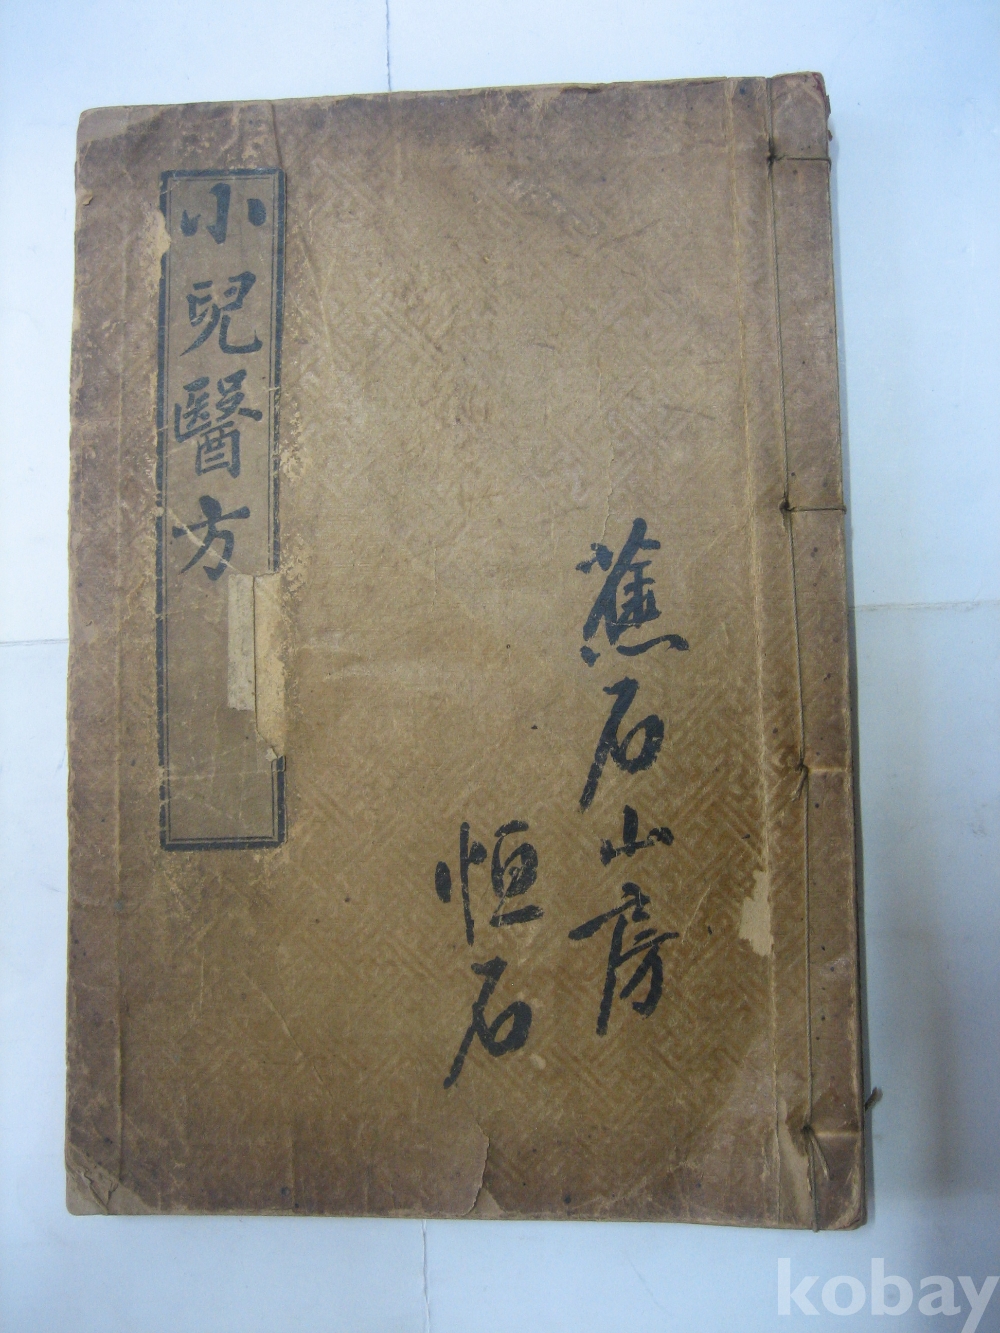 蕉石山房
恒石
小兒醫方
kobay